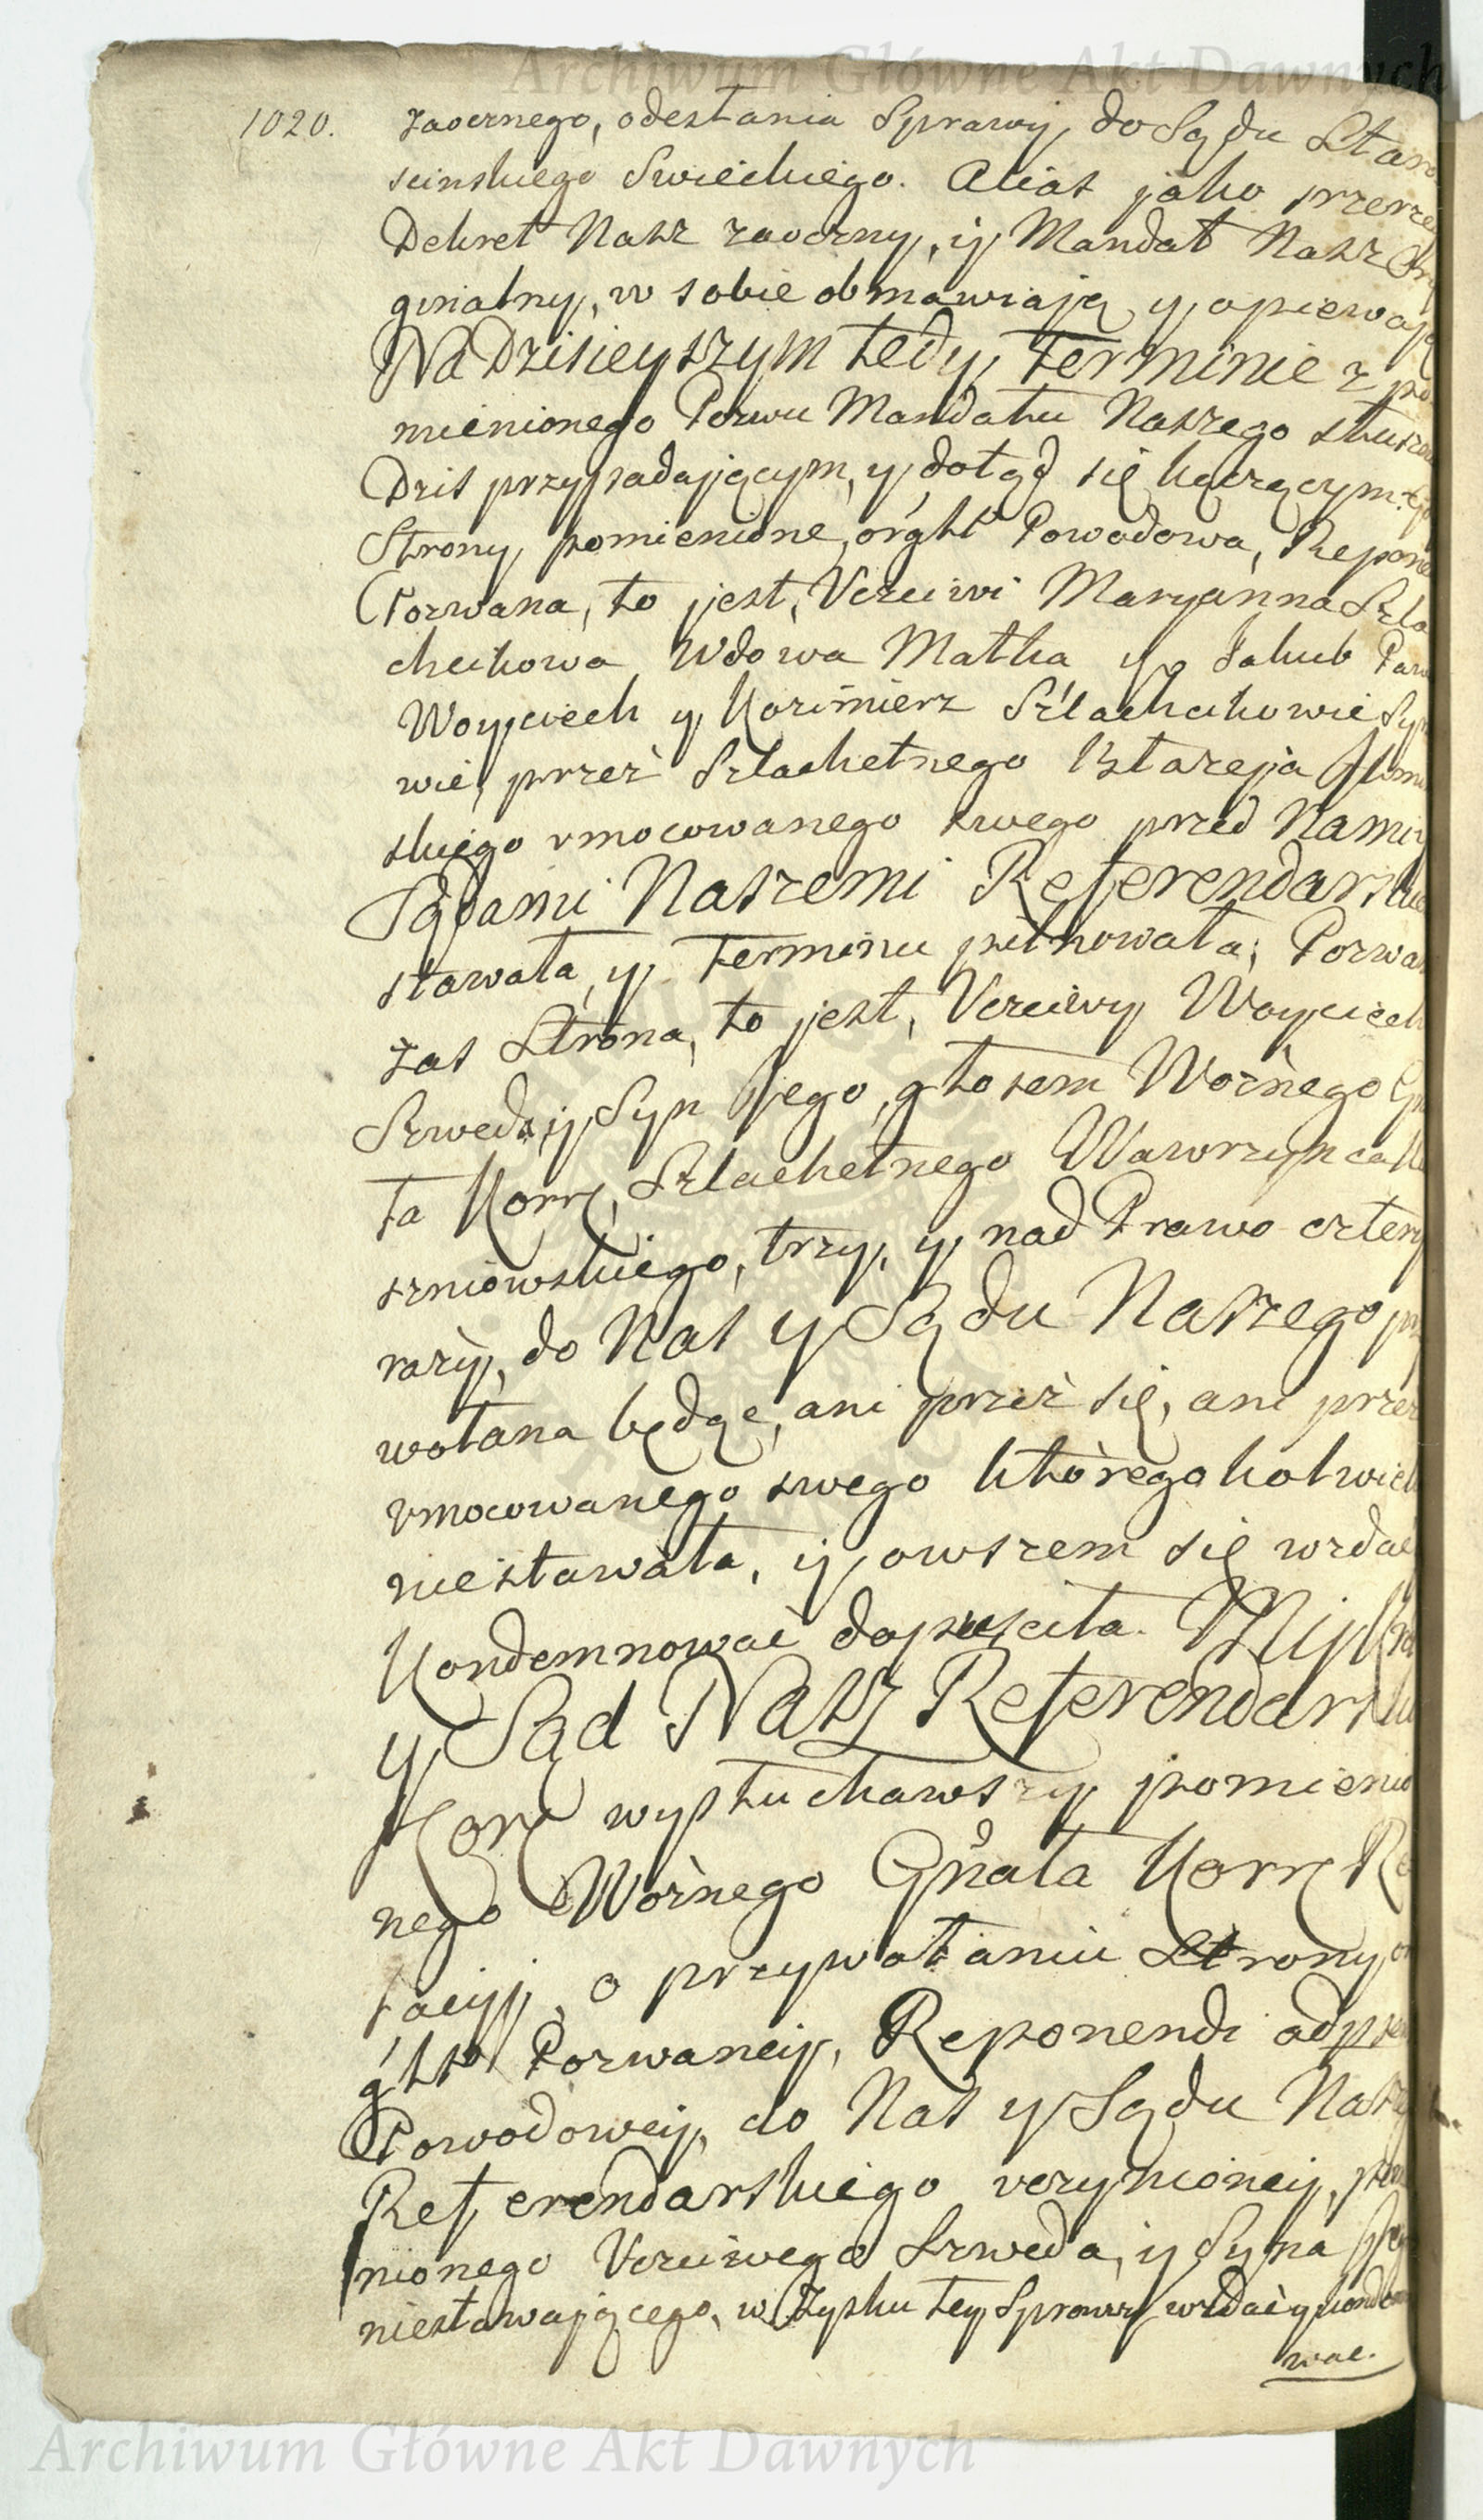 Archiwum Główne Akt Dawnych
1020.
zaocznego, odesłania Sprawy, do Sądu Staro
scinskiego Swieckiego. Alias jako przerze
Dekret Nasz zaoczny, y Mandat Nasz Ory
ginalny, w sobie obmawiają y opiewają
Na Dzisieyszym tedy, Terminie z po
mienionego Pozwu Mandatu Naszego
Dzis przypadającym, y dotąd się łączącym
Strony pomienione Powodowa,
Pozwana, to jest, Vczciwi Maryanna Szla
checkowa Wdowa Matka y Jakub
Woyciech y Kazimierz Szlacheckowie Syno
wie, przez Szlachetnego Błażeja
skiego vmocowanego swego przed Nami y
Sądami Naszemi Referendarskie
stawała, y Terminu pilnowała; Pozwa
zas Strona, to jest, Vczciwy Woyciech
Szwed, y Syn Jego, głosem Woznego
ta Korr, Szlachetnego Wawrzynca
szniowskiego, trzy, y nad Prawo cztery
razy, do Nas y Sądu Naszego przy
wołana będąc, ani przez się, ani przez
vmocowanego swego któregokolwiek
niestawała, y owszem się wzdać
Kondemnować dopuściła. My
y Sąd Nasz Referendarski
Kor wysłuchawszy pomienio
nego Woznego Gñała Korr Re
lacyi, o przywołaniu Strony
Pozwaney, Reponendi
Powodowey, do Nas y Sądu Nasze
Referendarskiego vczynioney,
nionego Vczciwego Szweda, y Syna Jego
niestawającego, w Zysku tey Sprawy wzdać y kondemno
wac.
Archiwum Główne Akt Dawnych